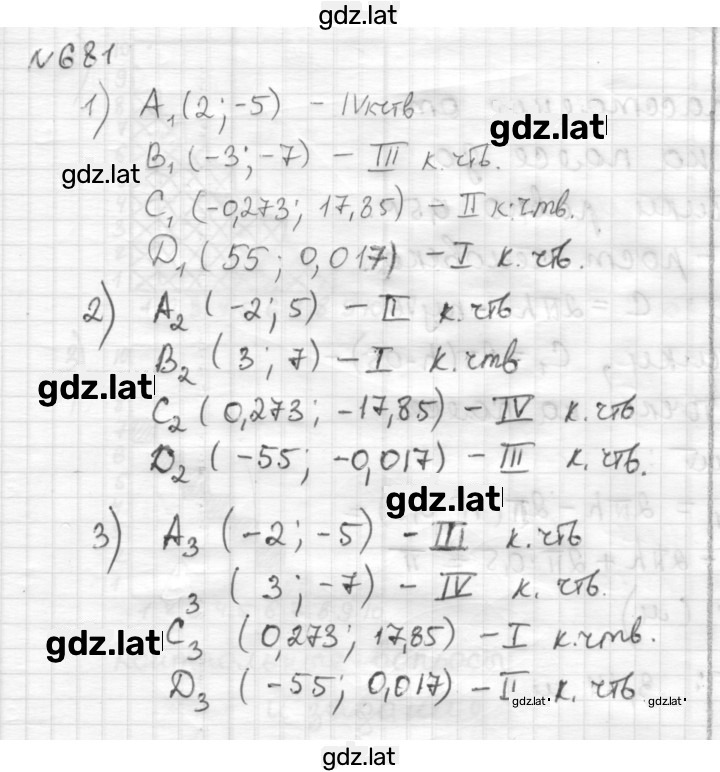 gdz.lat
№681
1) A₁(2; -5) - IV к.чтв
gdz.lat
B₁(-3; -7) - III к.чтв.
gdz.lat
C₁(-0,273; 17,85) - II к.чтв.
D₁(55; 0,017) - I к.чтв.
2) A₂(-2; 5) - II к.чтв
B₂(3; 7) - I к.чтв
gdz.lat
C₂(0,273; -17,85) - IV к.чтв
D₂(-55; -0,017) - III к.чтв.
gdz.lat
3) A₃(-2; -5) - III к.чтв
₃(3; -7) - IV к.чтв.
gdz.lat
C₃(0,273; 17,85) - I к.чтв.
D₃(-55; 0,017) - II к.чтв
gdz.lat gdz.lat
gdz.lat